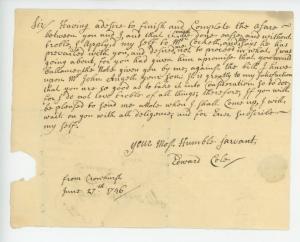 Sir/ Having a desire to finish and Complete the afare
between you and I, and that it might be done easie, and without
troble, I apply'd my self to Mr Corkoth, and says he had
prevailed with you, and desired not to proceed in what I was
going about, for you had given him a promise that you would
the Note given you by me; against the birth I have
upon Mr John your Son; It is greatly to my satisfaction
that you are so good as to take it into Consideration to do so:
for I do not love troble of all things; therefore, If you will
be pleased to send me word when I shall Come up, I will
wait on you with all deligence; and for Ever Subscribe
my self.
Your Most Humble Servant,
Edward Cole,
from Crowhurst
June 27th 1746